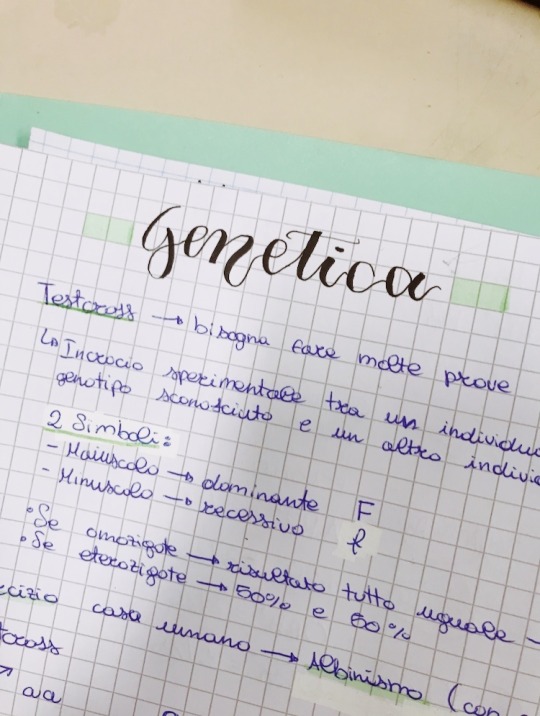 Genetica
Testcross → bisogna fare molte prove
↳ Incrocio sperimentale tra un individuo
genotipo sconosciuto e un altro indivi
2 Simboli:
- Maiuscolo → dominante F
- Minuscolo → recessivo f
• Se omozigote → risultato tutto uguale -
• Se eterozigote → 50% e 50%
ecizio caso umano → Albinismo (con
tcross
↗ aa